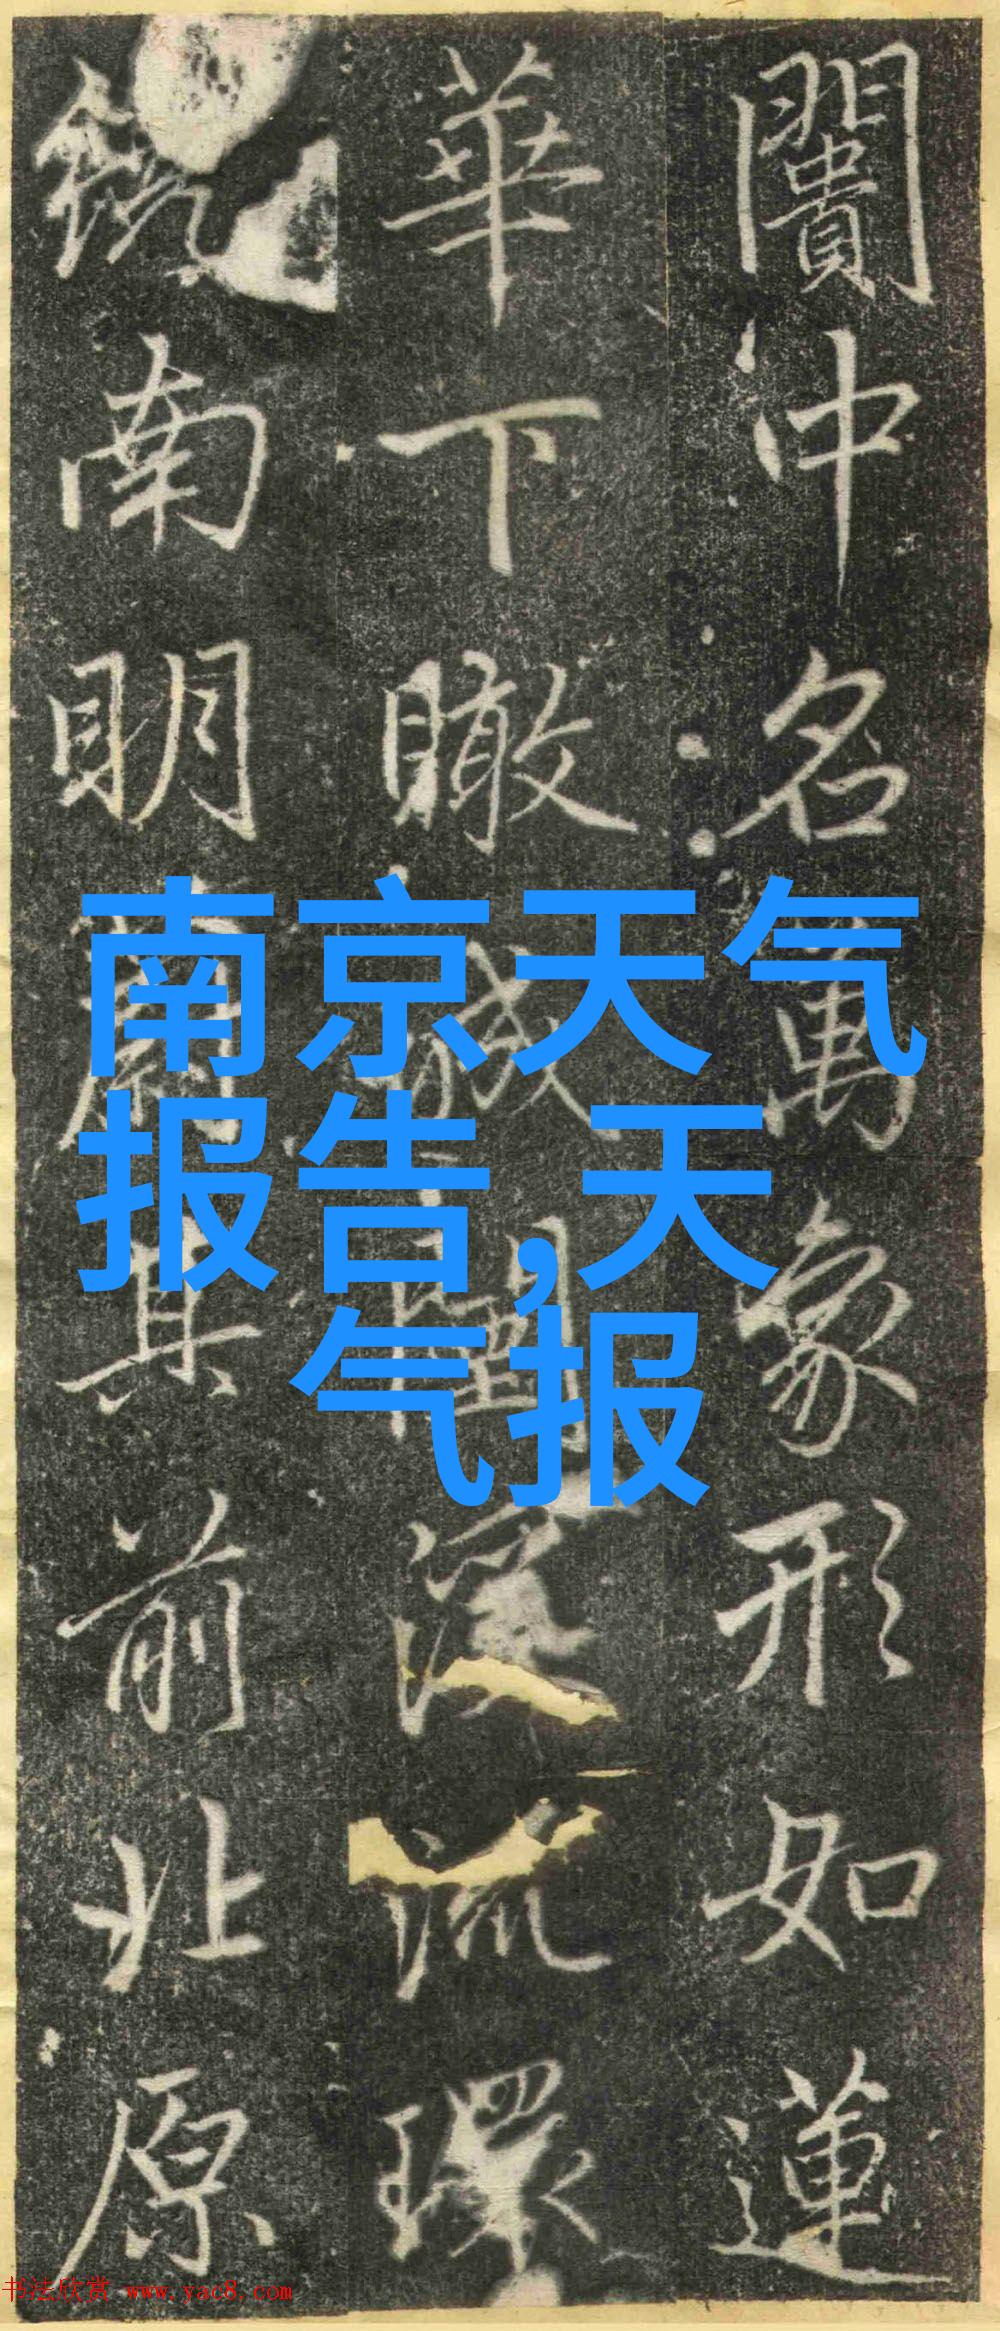 闠中名萬象形如蓮
華下瞰城闉流環
南明其前北原
南京天气
报告,天
气报
书法欣赏 www.yac8.com